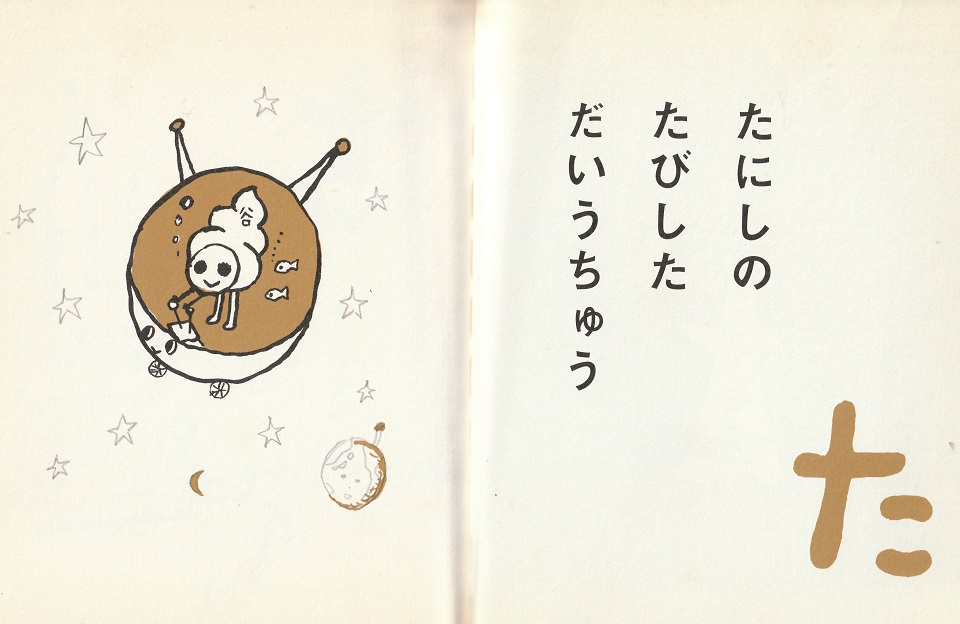 たにしの
たびした
だいうちゅう
た
谷